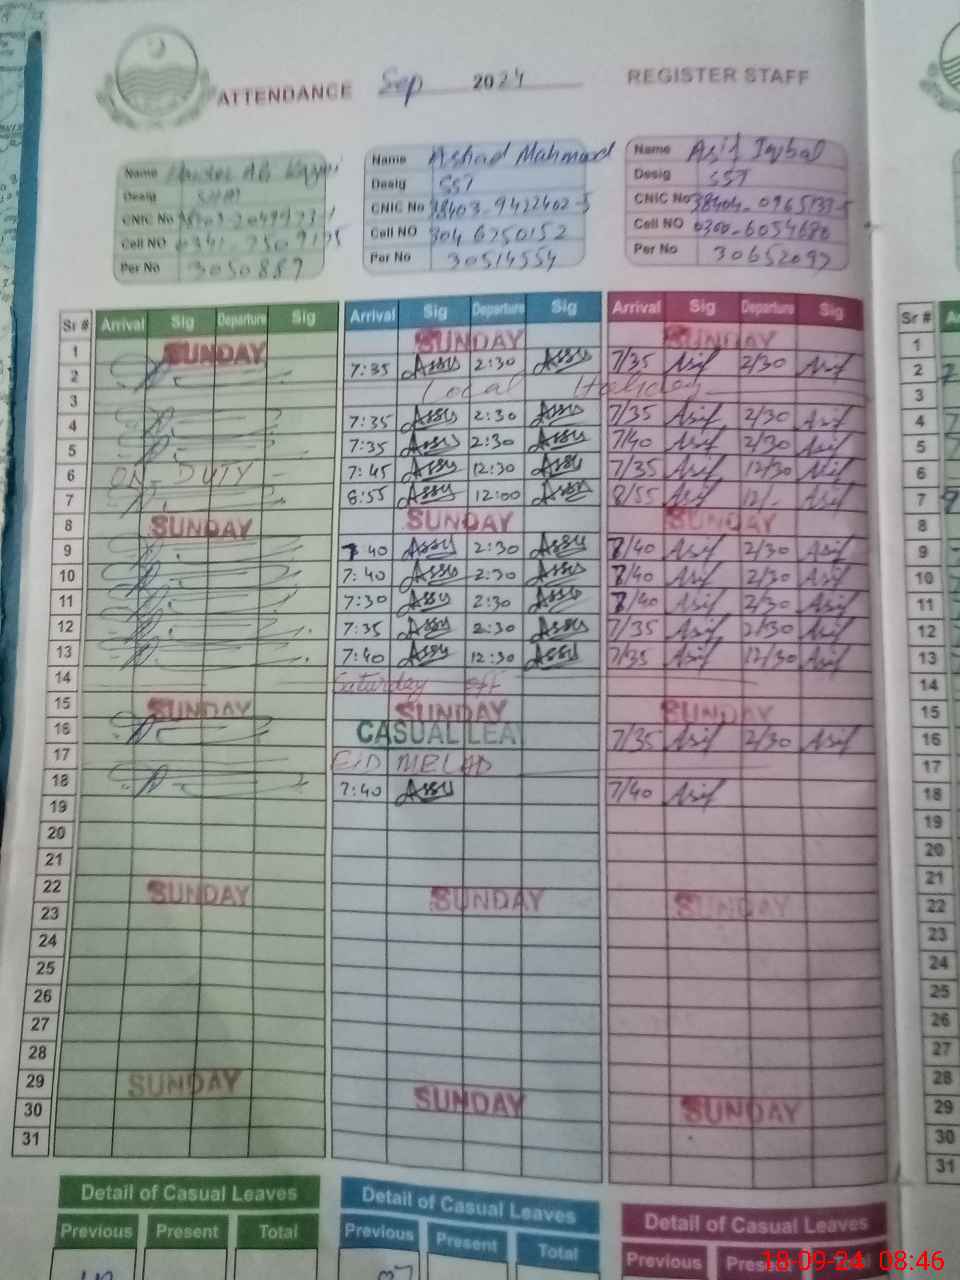 ATTENDANCE Sep 2024 REGISTER STAFF
Name
Desig
CNIC No
Cell NO
Per No 3050887
Name Ashad Mahmood
Desig SST
CNIC No 38403-9422402-5
Cell NO 304 6750152
Per No 30514554
Name Asif Iqbal
Desig SST
CNIC No 38404-0965133-5
Cell NO 0300-6054686
Per No 30652097
Sr # Arrival Sig Departure Sig Arrival Sig Departure Sig Arrival Sig Departure Sig Sr #
1 SUNDAY SUNDAY SUNDAY 1
2 7:35 Assu 2:30 Assu 7/35 Asif 2/30 Asif 2
3 Local Holiday 3
4 7:35 Assu 2:30 Assu 7/35 Asif 2/30 Asif 4
5 7:35 Assu 2:30 Assu 7/40 Asif 2/30 Asif 5
6 ON DUTY 7:45 Assu 12:30 Assu 7/35 Asif 12/30 Asif 6
7 8:55 Assu 12:00 Assu 8/55 Asif 12/- Asif 7
8 SUNDAY SUNDAY SUNDAY 8
9 7 40 Assu 2:30 Assu 7/40 Asif 2/30 Asif 9
10 7:40 Assu 2:30 Assu 7/40 Asif 2/30 Asif 10
11 7:30 Assu 2:30 Assu 7/40 Asif 2/30 Asif 11
12 7:35 Assu 2:30 Assu 7/35 Asif 2/30 Asif 12
13 7:40 Assu 12:30 Assu 7/35 Asif 12/30 Asif 13
14 Saturday off 14
15 SUNDAY SUNDAY SUNDAY 15
16 CASUAL LEA 7/35 Asif 2/30 Asif 16
17 EID MELAD 17
18 7:40 Assu 7/40 Asif 18
19 19
20 20
21 21
22 SUNDAY SUNDAY SUNDAY 22
23 23
24 24
25 25
26 26
27 27
28 28
29 SUNDAY SUNDAY SUNDAY 29
30 30
31 31
Detail of Casual Leaves Detail of Casual Leaves Detail of Casual Leaves
Previous Present Total Previous Present Total Previous
18-09-24 08:46